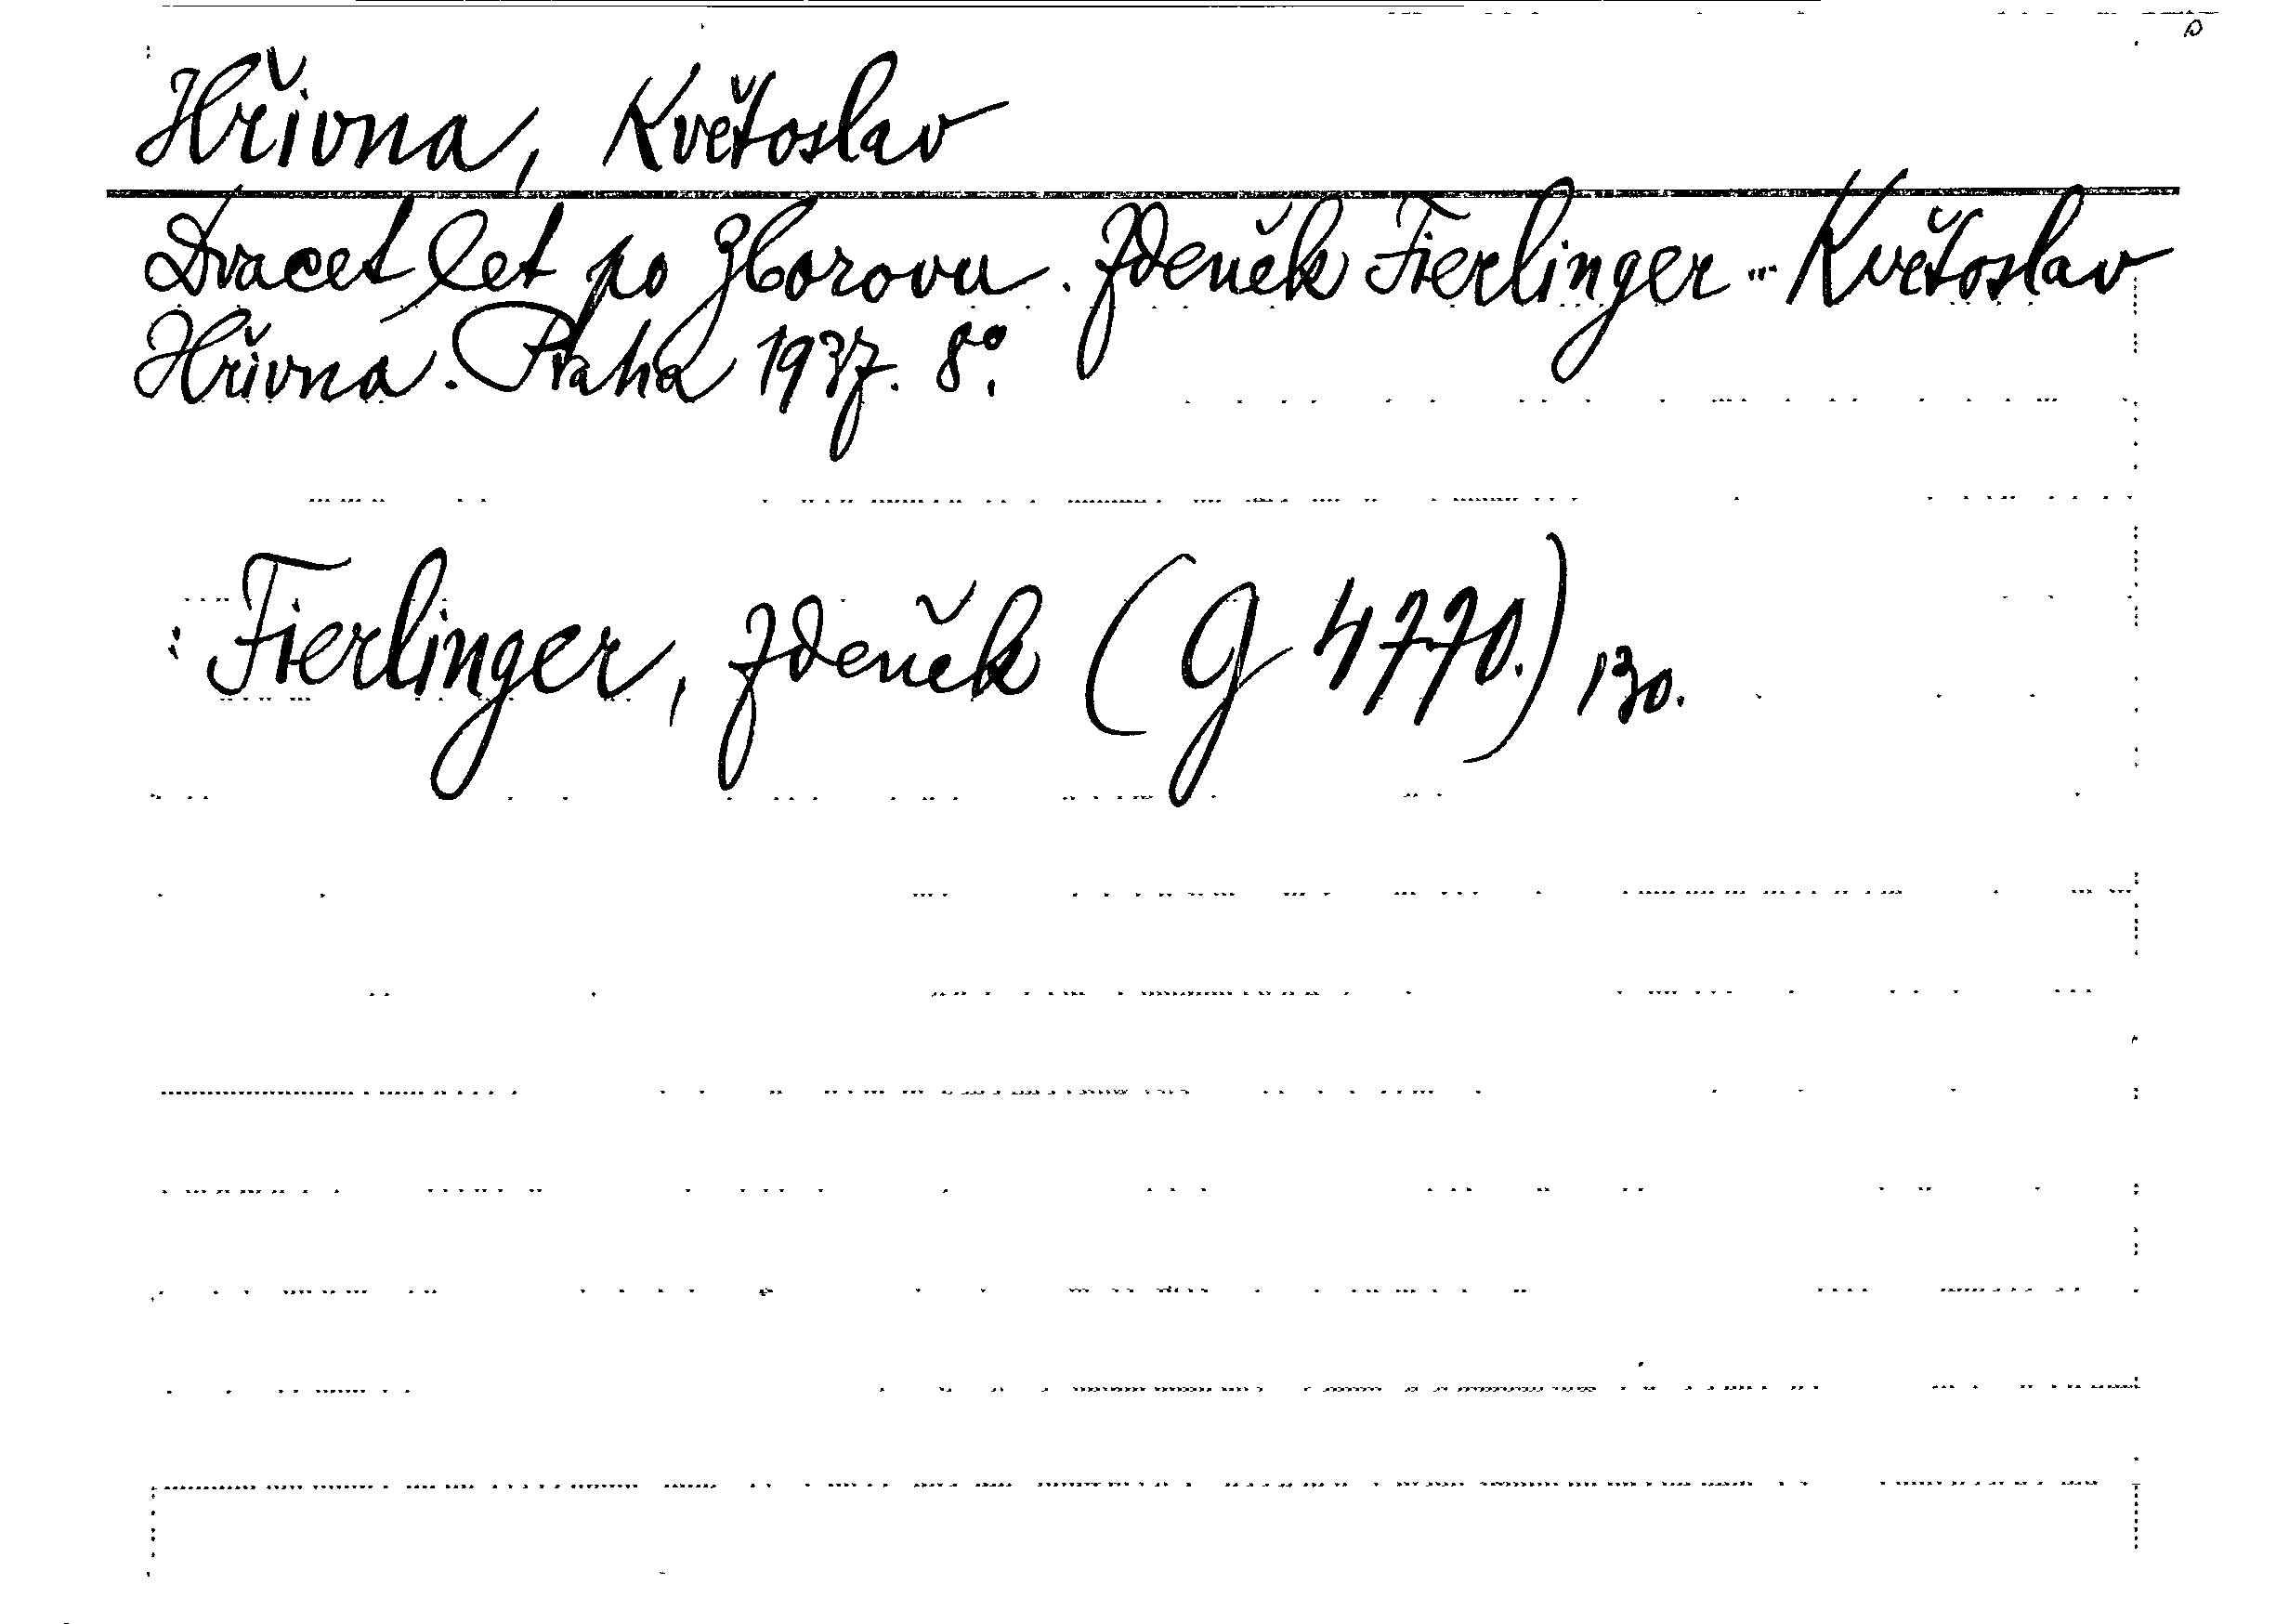 Hřivna, Květoslav
Dvacet let po Zborovu. Zdeněk Fierlinger ... Květoslav
Hřivna. Praha 1937. 8°.
: Fierlinger, Zdeněk (G 4770.) 130.